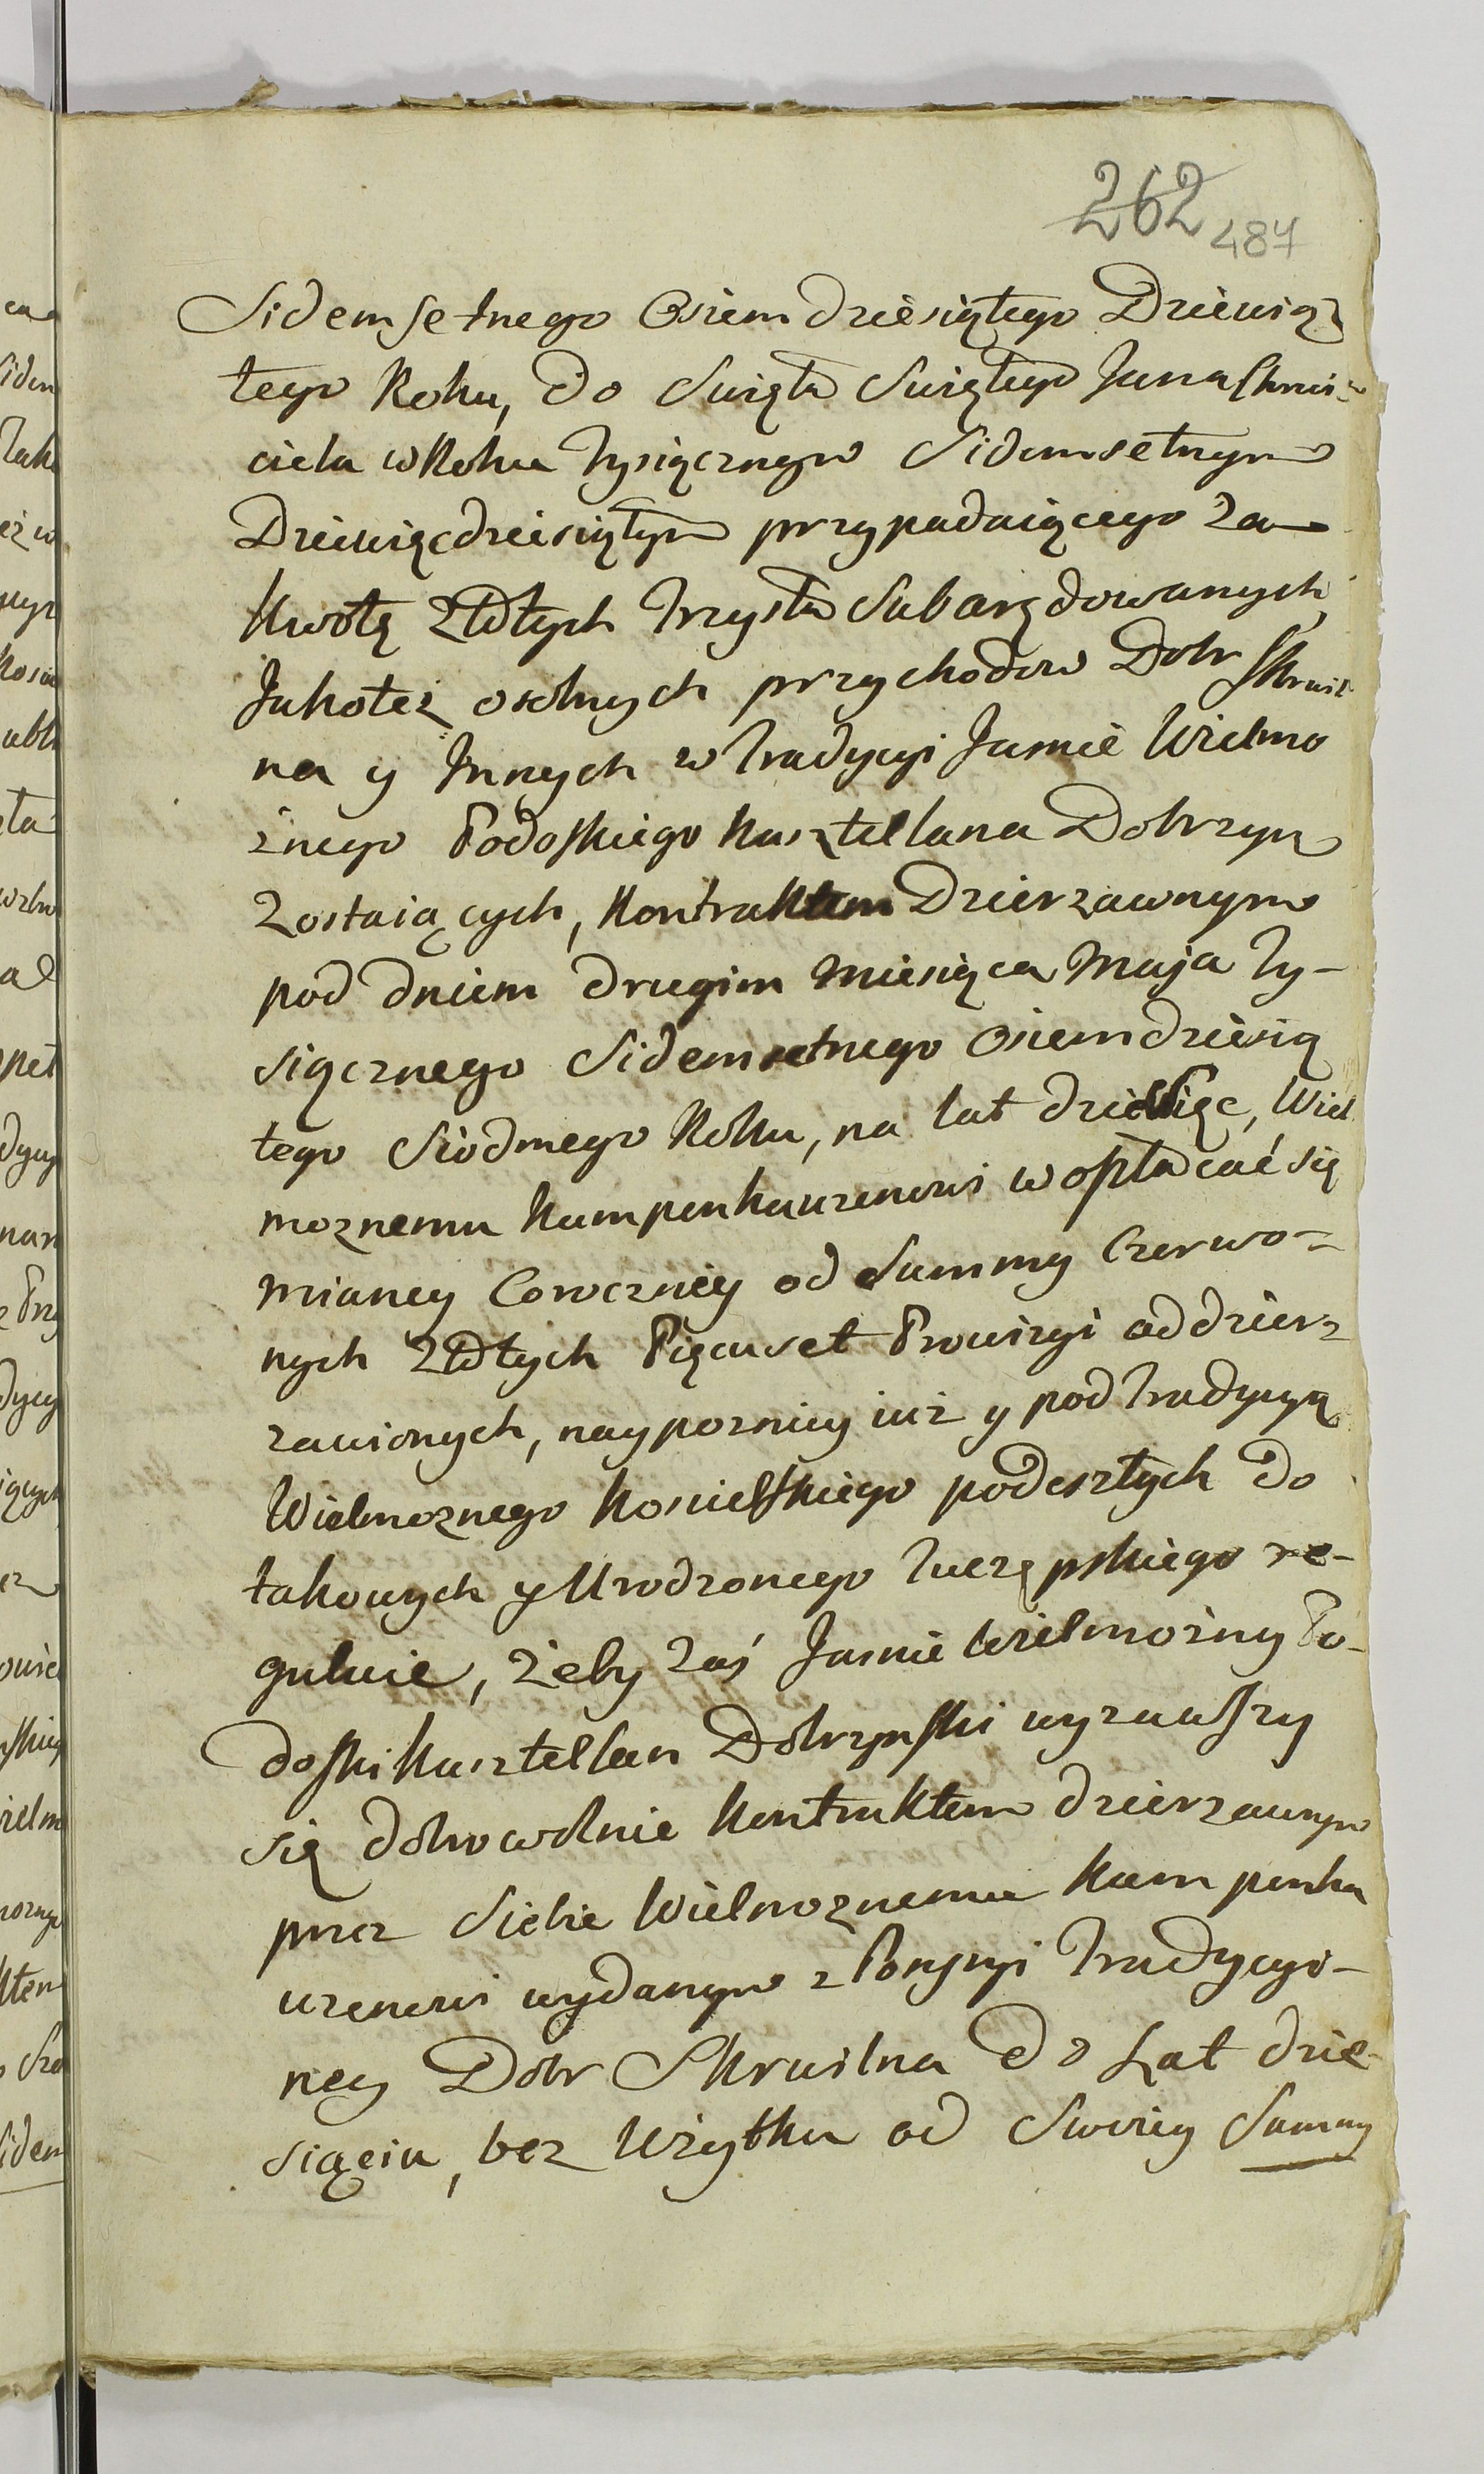 262 487
Sidemsetnego Osiemdziesiątego Dziewią
tego Roku, do Swięta Swiętego Jana Chrzci-
ciela w Roku Tysiącznym Sidemsetnym
Dziewięcdziesiątym przypadaiącego za
Kwotę Złotych Trzysta Subarędowanych,
Jakoteż osobnych przychodow Dobr Skrwil
na y Innych w Tradycyi Jasnie Wielmo
żnego Podoskiego Kasztellana Dobrzyn
Zostaiących, Kontraktem Dzierzawnym
pod dniem drugim Miesiąca Maja Ty-
siącznego Sidemsetnego Osiemdziesią
tego Siodmego Roku, na lat dziesięc, Wiel
moznemu Kampenhauzenowi w opłacać się
mianey Coroczniey od Summy Czerwo-
nych Złotych Pięcuset Prowizyi oddzier-
zawionych, naypozniey iuż y pod Tradycyą
Wielmoznego Kosielskiego podeszłych do
takowych y Urodzonego Turzępskiego re-
guluie, Żeby zaś Jasnie Wielmożny Po-
doski Kasztellan Dobrzynski wyzuwszy
się dobrowolnie Kontraktem dzierzawnym
przez Siebie Wielmoznemu Kampenha
uzenowi wydanym z Possyi Tradycyi-
ney Dobr Skrwilna do Lat dzie-
sięciu, bez Użytku od Swoiey Summy